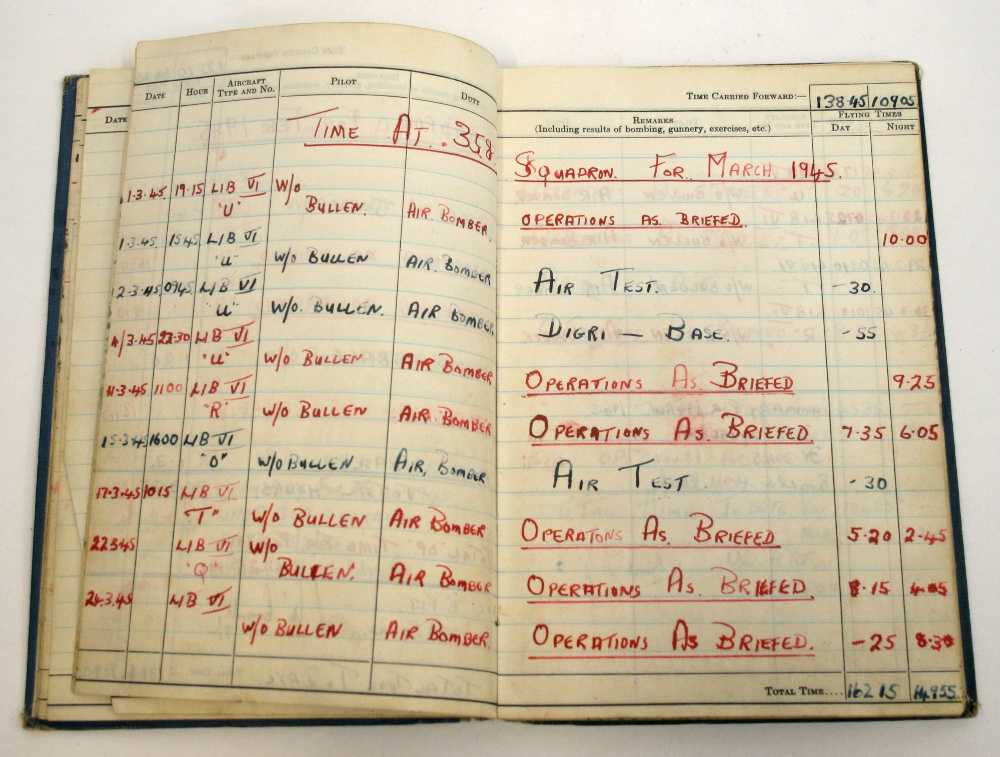 DATE HOUR AIRCRAFT TYPE AND NO. PILOT DUTY
DATE
TIME AT 358
1.3.45 19.15 LIB VI W/O
"U" BULLEN. AIR BOMBER.
1.3.45. 1545 LIB VI
"U" W/O BULLEN AIR BOMBER
2.3.45 0945 LIB VI
"U" W/O. BULLEN. AIR BOMBER
4/3.45 22.30 LIB VI
"U" W/O BULLEN AIR BOMBER
11.3.45 1100 LIB VI
"R" W/O BULLEN AIR BOMBER
15.3.45 1600 LIB VI
"O" W/O BULLEN AIR, BOMBER
17.3.45 1015 LIB VI
"T" W/O BULLEN AIR BOMBER
22.3.45 LIB VI W/O
"Q BULLEN. AIR BOMBER
24.3.45 LIB VI
W/O BULLEN AIR BOMBER.
TIME CARRIED FORWARD:— 138.45 109.05
REMARKS
(Including results of bombing, gunnery, exercises, etc.)
FLYING TIMES
DAY NIGHT
SQUADRON. FOR MARCH 1945.
OPERATIONS AS BRIEFED.
10.00
AIR TEST. -30.
DIGRI — BASE. -55
OPERATIONS AS BRIEFED 9.25
OPERATIONS AS BRIEFED. 7.35 6.05
AIR TEST. -30
OPERATONS AS BRIEFED 5.20 2.45
OPERATIONS AS BRIEFED. 8.15 4.05
OPERATIONS AS BRIEFED. -25 8.30
TOTAL TIME.... 162 15 149 55